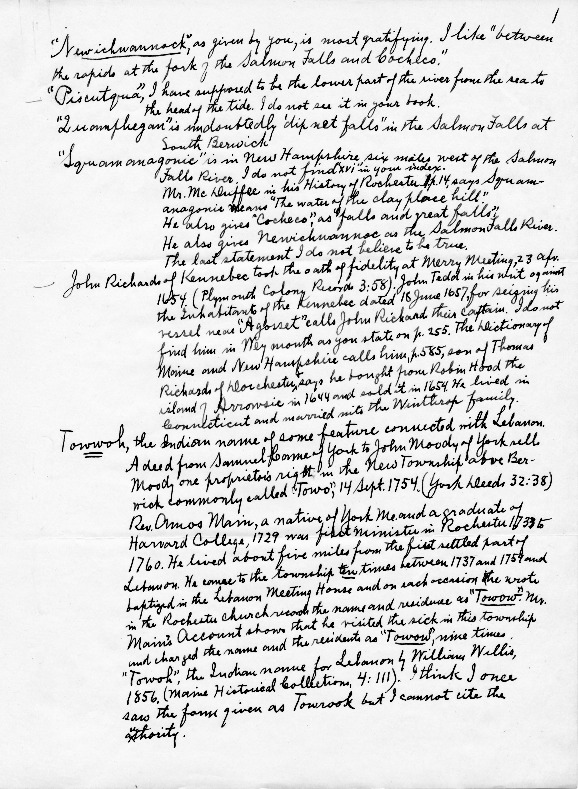 1
"Newichwannock", as given by you, is most gratifying. I like "between
the rapids at the fork of the Salmon Falls and Cocheco."
"Piscutqua", I have supposed to be the lower part of the river from the sea to
the head of the tide. I do not see it in your book.
"Quamphegan" is undoubtedly 'dip net falls' in the Salmon Falls at
South Berwick
"Squamanagonic" is in New Hampshire, six miles west of the Salmon
Falls River. I do not find XVI in your index.
Mr. Mc Duffee in his History of Rochester, p. 14, says Squam-
anagonic means "The water of the clay place hill".
He also gives "Cocheco", as "falls and great falls",
He also gives Newichwannoc as the Salmon Falls River.
The last statement I do not believe to be true.
John Richards of Kennebec took the oath of fidelity at Merry Meeting, 23 apr.
1654. (Plymouth Colony Records 3:58); John Tedd in his writ against
the Inhabitants of the Kennebec dated 18 June 1657, for seizing his
vessel near "Agosset" calls John Richard their Captain. I do not
find him in Weymouth as you state on p. 255. The Dictionary of
Maine and New Hampshire calls him, p. 585, son of Thomas
Richards of Dorchester, says he bought from Robin Hood the
island of Arrowsic in 1649 and sold it in 1654. He lived in
Connecticut and married into the Winthrop family.
Towwoh, the Indian name of some feature connected with Lebanon.
A deed from Samuel Came of York to John Moody of York sells
Moody one proprietor's right in the New Township above Ber-
wick commonly called "Towo", 14 Sept. 1754. (York Deeds 32:38)
Rev. Amos Main, a native of York Me. and a graduate of
Harvard College, 1729 was first minister in Rochester 1733 to
1760. He lived about five miles from the first settled part of
Lebanon. He came to the township ten times between 1737 and 1759 and
baptized in the Lebanon Meeting House and on each occasion he wrote
in the Rochester church records the name and residence as "Towow". Mr.
Main's Account shows that he visited the sick in this township
and charged the name and the residents as "Towow", nine times.
"Towoh", the Indian name for Lebanon by William Willis,
1856, (Maine Historical Collection, 4:111). I think I once
saw the form given as Towrook but I cannot cite the
athority.